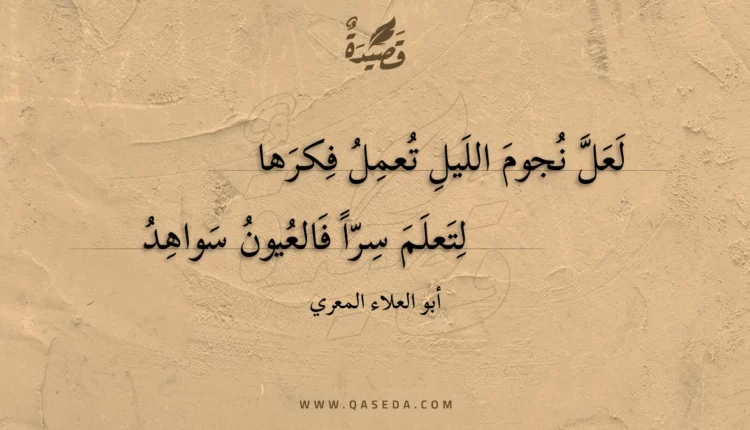 قَصِيْدَةٌ
لَعَلَّ نُجومَ اللَيلِ تُعمِلُ فِكرَها
لِتَعلَمَ سِرّاً فَالعُيونُ سَواهِدُ
أبو العلاء المعري
WWW.QASEDA.COM